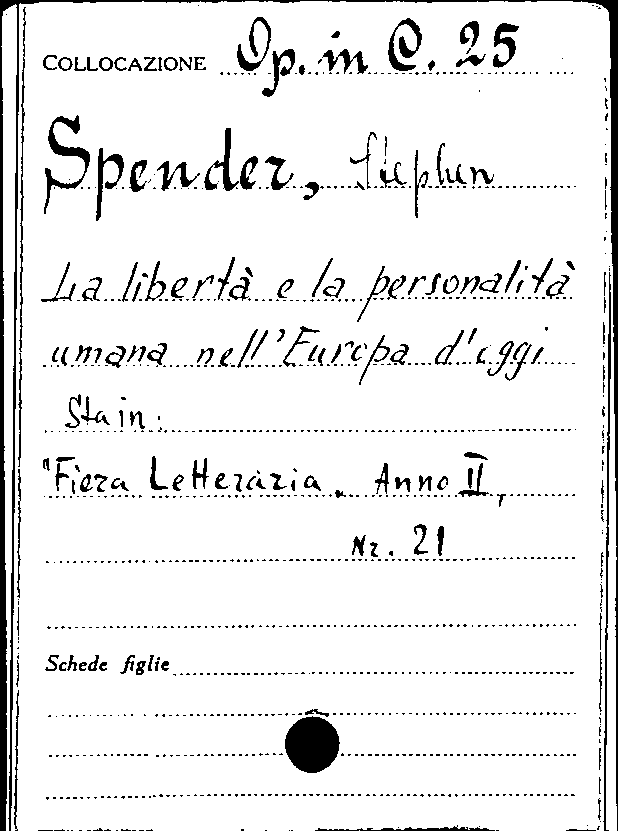 COLLOCAZIONE Op. in C. 25
Spender, Stephen
La libertà e la personalità
umana nell'Europa d'oggi
Sta in:
"Fiera Letteraria. Anno II,
Nr. 21
Schede figlie